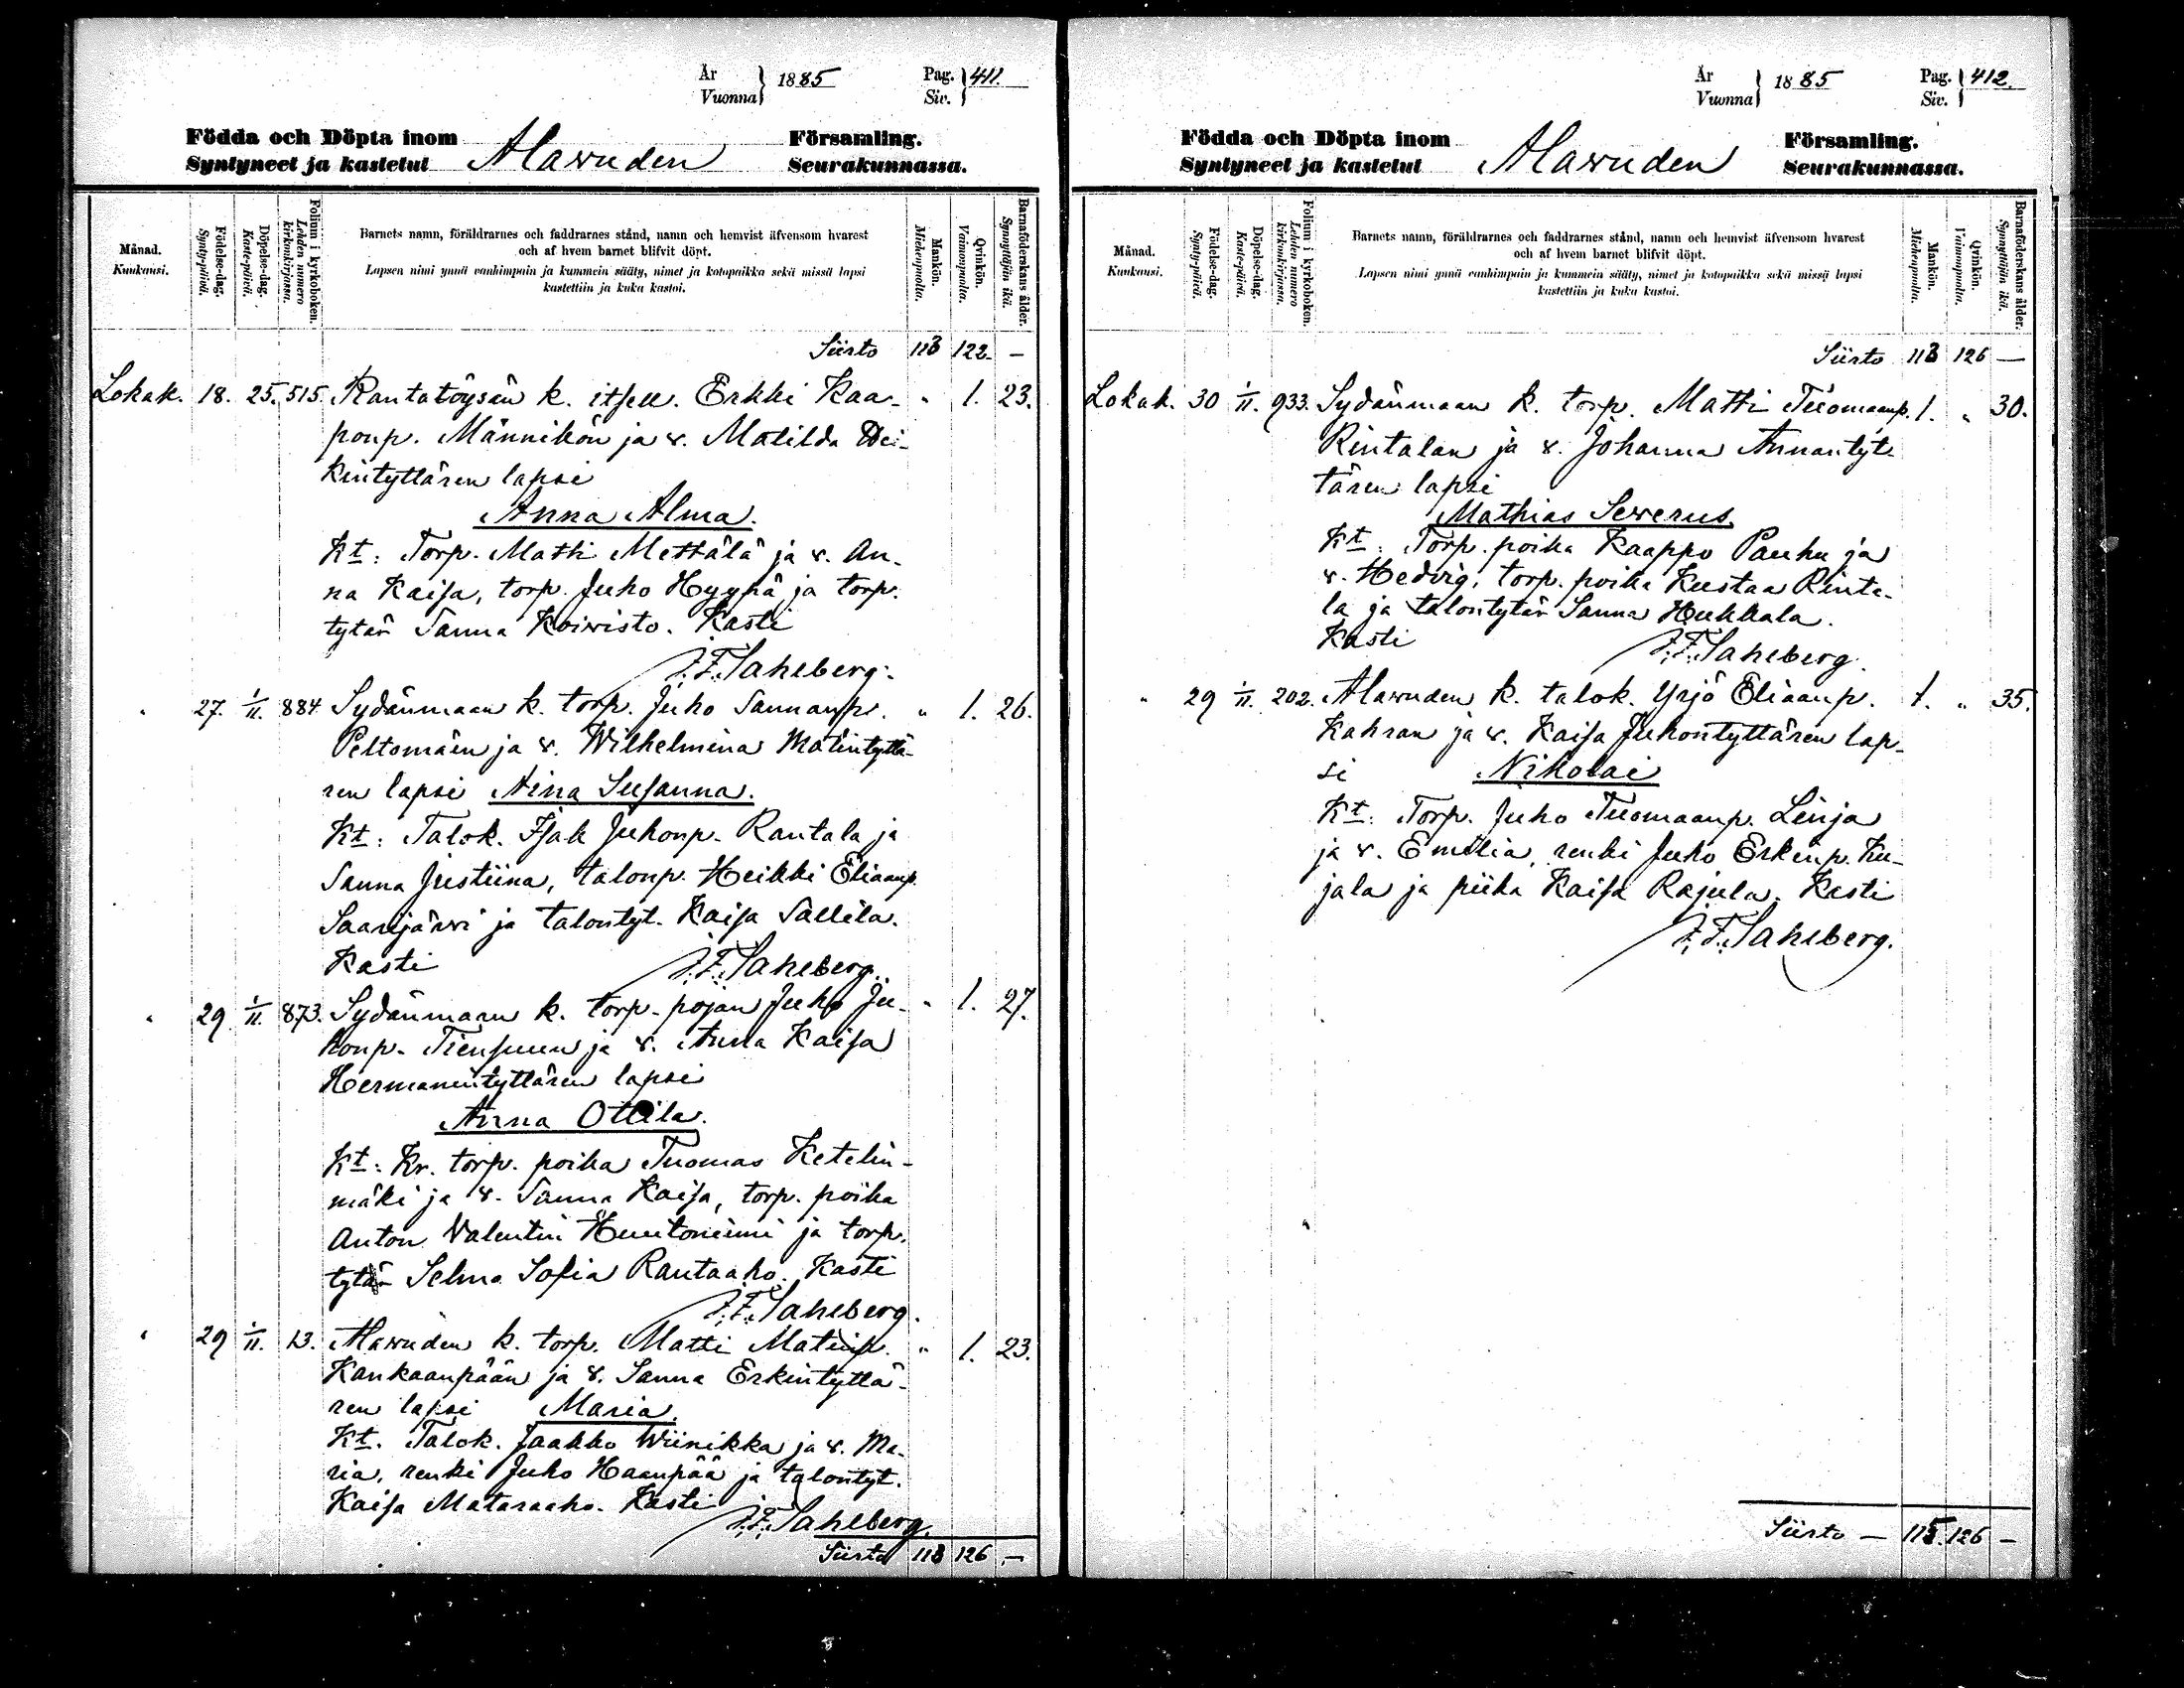 År
Vuonna } 1885 Pag. Siv. } 411.
Födda och Döpta inom Församling.
Syntyneet ja kastetut Alavuden Seurakunnassa.
Månad. Kuukausi.
Födelse-dag. Synty-päivä.
Döpelse-dag. Kaste-päivä.
Folium i kyrkoboken. Lehden numero kirkonkirjassa.
Barnets namn, föräldrarnes och faddrarnes stånd, namn och hemvist äfvensom hvarest
och af hvem barnet blifvit döpt.
Lapsen nimi ynnä vanhimpain ja kummein sääty, nimet ja kotopaikka sekä missä lapsi
kastettiin ja kuka kastoi.
Mankön. Miehenpuolta.
Qvinkön. Vaimonpuolta.
Barnaföderskans ålder. Synnyttäjän ikä.
Siirto 113 122 —
Lokak. 18. 25. 515. Rantatöysän k. itsell. Erkki Kaa- " 1. 23.
ponp. Männikön ja v. Matilda Hei-
kintyttären lapsi
Anna Alma.
Kt: Torp. Matti Mettälä ja v. An-
na Kaisa, torp. Juho Hyypä ja torp.
tytär Sanna Koivisto. Kasti
J.F. Saheberg.
" 27. 1/11. 884. Sydänmaan k. torp. Juho Sannanp. " 1. 26.
Peltomäen ja v. Wilhelmina Matintyttä-
ren lapsi Aina Susanna.
Kt: Talok. Isak Juhonp. Rantala ja
Sanna Justiina, talonp. Heikki Eliaanp.
Saarijärvi ja talontyt. Kaisa Sallila.
Kasti J.F. Saheberg.
" 29 1/11. 873. Sydänmaan k. torp. pojan Juho Ju- " 1. 27.
honp. Tiensuun ja v. Anna Kaisa
Hermanintyttären lapsi
Anna Ottila.
Kt: Kr. torp. poika Tuomas Ketelin-
mäki ja v. Sanna Kaisa, torp. poika
Anton Valentin Huntoniemi ja torp.
tytär Selma Sofia Rantaaho. Kasti
J.F. Saheberg.
" 29 1/11. 13. Alavuden k. torp. Matti Matinp. " 1. 23.
Kankaanpään ja v. Sanna Erkintyttä-
ren lapsi Maria.
Kt. Talok. Jaakko Wiinikka ja v. Ma-
ria, renki Juho Haanpää ja talontyt.
Kaisa Mataraaho. Kasti
J.F. Saheberg.
Siirto 113 126 —
År
Vuonna } 1885 Pag. Siv. } 412.
Födda och Döpta inom Församling.
Syntyneet ja kastetut Alavuden Seurakunnassa.
Månad. Kuukausi.
Födelse-dag. Synty-päivä.
Döpelse-dag. Kaste-päivä.
Folium i kyrkoboken. Lehden numero kirkonkirjassa.
Barnets namn, föräldrarnes och faddrarnes stånd, namn och hemvist äfvensom hvarest
och af hvem barnet blifvit döpt.
Lapsen nimi ynnä vanhimpain ja kummein sääty, nimet ja kotopaikka sekä missä lapsi
kastettiin ja kuka kastoi.
Mankön. Miehenpuolta.
Qvinkön. Vaimonpuolta.
Barnaföderskans ålder. Synnyttäjän ikä.
Siirto 113 126 —
Lokak. 30 1/11. 933. Sydänmaan k. torp. Matti Tuomaanp. 1. " 30.
Rintalan ja v. Johanna Annantyt-
tären lapsi
Mathias Severus.
Kt: Torp. poika Kaappo Pauhu ja
v. Hedvig, torp. poika Kustaa Rinta-
la ja talontytär Sanna Hukkala.
Kasti J.F. Saheberg.
" 29 1/11. 202. Alavuden k. talok. Yrjö Eliaanp. 1. " 35.
Kahran ja v. Kaisa Juhontyttären lap-
si Nikolai
Kt: Torp. Juho Tuomaanp. Linja
ja v. Emilia, renki Juho Erkinp. Ku-
jala ja piika Kaisa Rajula. Kasti
J.F. Saheberg.
Siirto — 115. 126 —